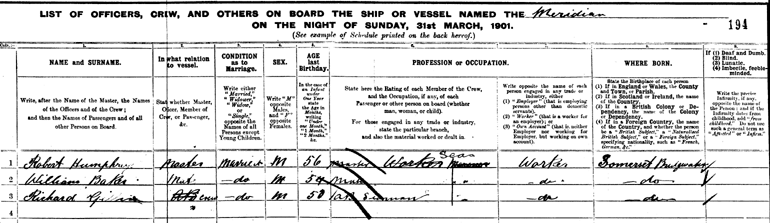 LIST OF OFFICERS, CREW, AND OTHERS ON BOARD THE SHIP OR VESSEL NAMED THE Meridian
ON THE NIGHT OF SUNDAY, 31st MARCH, 1901. 194
(See example of Schedule printed on the back hereof.)
NAME and SURNAME.
Write, after the Name of the Master, the Names
of the Officers and of the Crew;
and then the Names of Passengers and of all
other Persons on Board.
In what relation
to vessel.
Stat whether Master,
Officer, Member of
Crew, or Passenger,
&c.
CONDITION
as to
Marriage.
Write either
"Married,"
"Widower,"
"Widow,"
or
"Single,"
opposite the
Names of all
Persons except
Young Children.
SEX.
Write "M"
opposite
Males,
and "F"
opposite
Females.
AGE
last
Birthday.
PROFESSION or OCCUPATION.
State here the Rating of each Member of the Crew,
and the Occupation, if any, of each
Passenger or other Person on board (whether
man, woman, or child).
For those engaged in any trade or industry,
state the particular branch,
and also the material worked or dealt in.
Write opposite the name of each
person engaged in any trade or
industry, either
(1) "Employer" (that is employing
persons other than domestic
servants),
(2) "Worker" (that is a worker for
an employer); or
(3) "Own Account" (that is neither
Employer nor working for
Employer, but working on own
account).
WHERE BORN.
State the Birthplace of each person
(1) If in England or Wales, the County
and Town, or Parish.
(2) If in Scotland or Ireland, the name
of the Country.
(3) If in a British Colony or Dependency,
the name of the Colony
or Dependency.
(4) If in a Foreign Country, the name
of the Country, and whether the person
be a "British Subject," a "Naturalised
British Subject," or a "Foreign Subject,"
specifying nationality, such as "French,
German, &c."
If (1) Deaf and Dumb.
(2) Blind.
(3) Lunatic.
(4) Imbecile, feeble-minded.
1 Robert Humphrey Master Married M 56 Worker Seas Worker Somerset Bridgwater
2 William Baker Mate do M do do
3 Richard Crew do M 50 do do
4